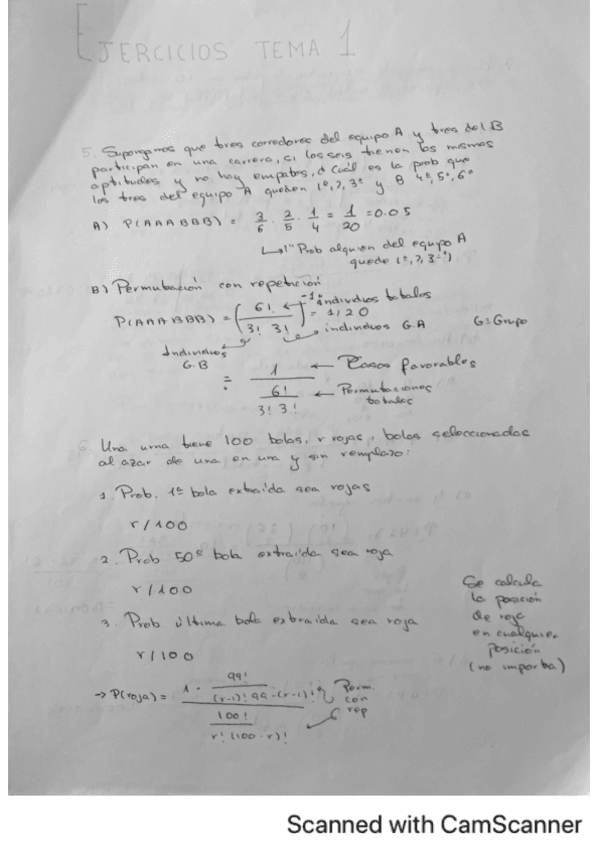 EJERCICIOS TEMA 1
5. Supongamos que tres corredores del equipo A y tres del B
participan en una carrera, si los seis tienen las mismas
aptitudes y no hay empates, ¿Cuál es la prob que
los tres del equipo A queden 1º, 2, 3º y B 4º, 5º, 6º
A) P(AAABBB) = 3/6 · 2/5 · 1/4 = 1/20 = 0.05
↳ "Prob alguien del equipo A
quede 1º, 2, 3º"
B) Permutación con repetición
P(AAABBB) = (6! / 3! 3!)^-1 = 1/20
individuos totales
individuos G.A
G: Grupo
Individuos
G.B
= 1 / (6! / 3! 3!)
← Casos favorables
← Permutaciones
totales
6. Una urna tiene 100 bolas, r rojas, bolas seleccionadas
al azar de una en una y sin remplazo:
1. Prob. 1ª bola extraida sea rojas
r/100
2. Prob 50ª bola extraida sea roja
r/100
3. Prob última bola extraida sea roja
r/100
Se calcula
la posición
de roja
en cualquier
posición
(no importa)
→ P(roja) = (1 · 99! / (r-1)! 99-(r-1)!) / (100! / r! (100-r)!)
Perm.
con
rep
Scanned with CamScanner